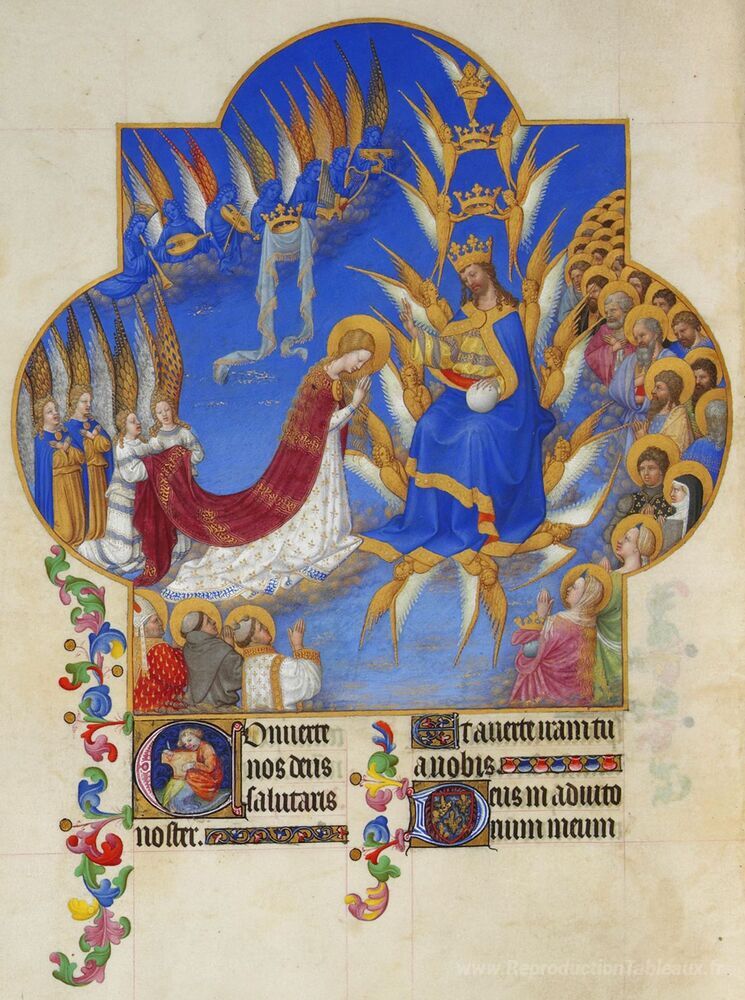 Conuerte
nos deus
salutaris
noster.
Et auerte iram tu
a nobis.
Deus in adiuto
rium meum
www.ReproductionTableaux.fr